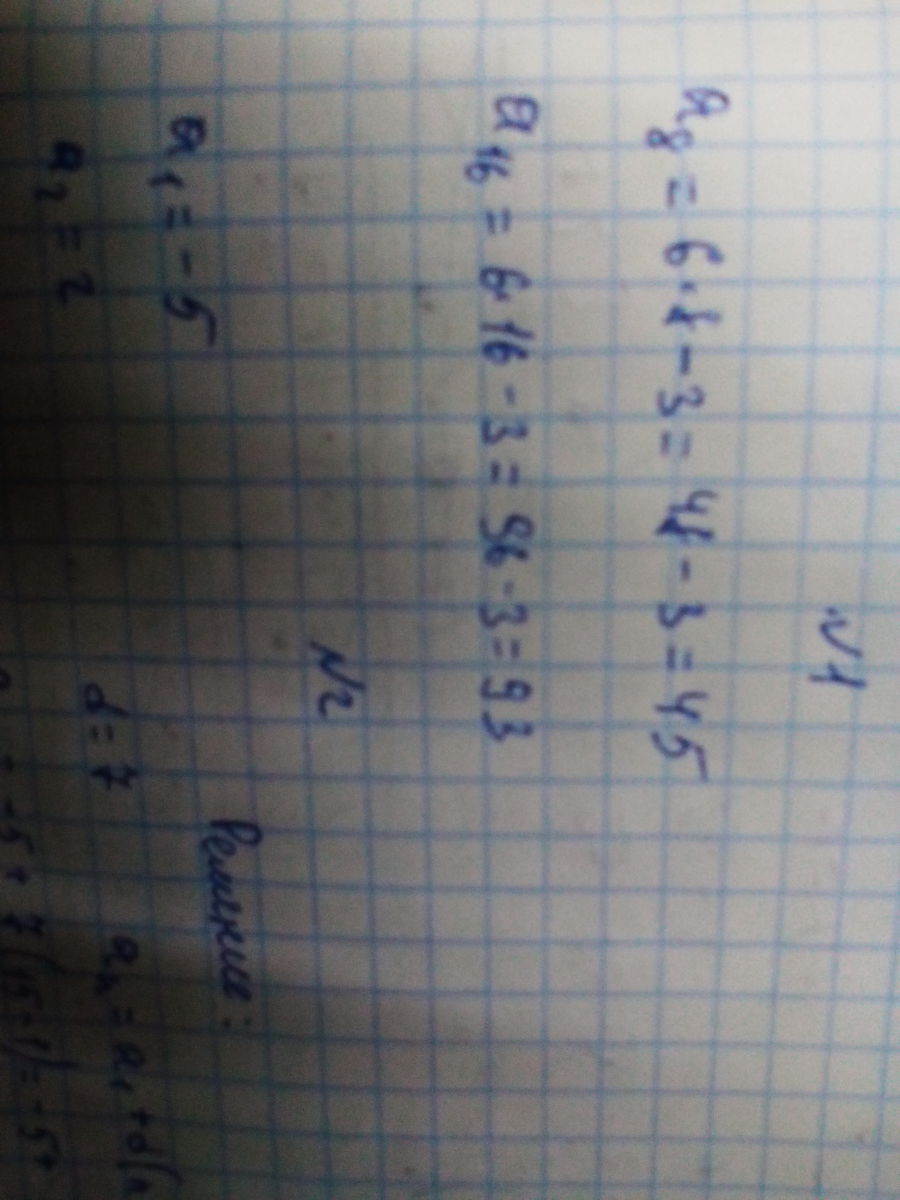 №1
a₈ = 6·8 - 3 = 48 - 3 = 45
a₁₆ = 6·16 - 3 = 96 - 3 = 93
№2
Решение:
a₁ = -5
d = 7 aₙ = a₁ + d(n
a₂ = 2
= -5 + 7(15-1) = -5+